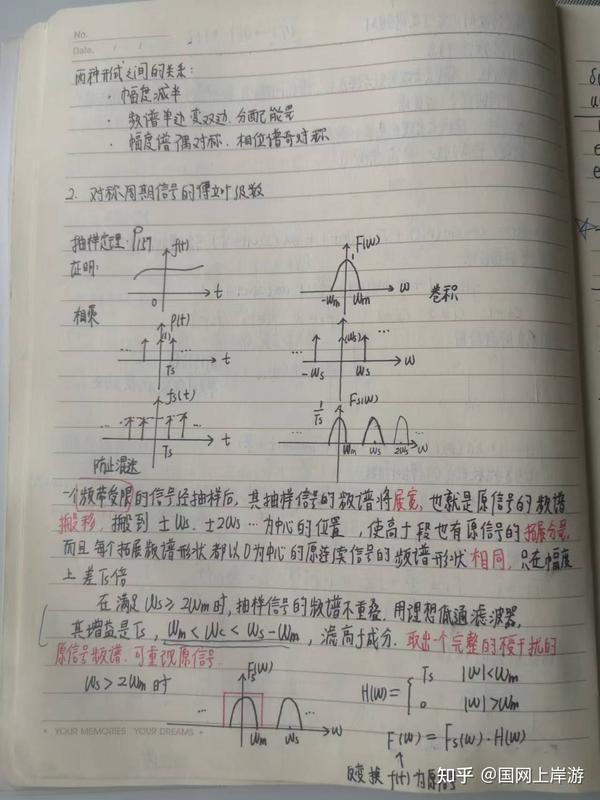 No.
Date.
两种形式之间的关系:
· 幅度减半
· 频谱单边变双边,分配能量
· 幅度谱偶对称,相位谱奇对称
2. 对称周期信号的傅立叶级数
抽样定理: P157
证明: f(t) F(w)
0 t -Wm Wm w 卷积
相乘 p(t) (ws)
(1) ... Ts t ... -Ws Ws w ...
fs(t) 1/Ts Fs(w)
... t Wm Ws 2Ws w
防止混迭
一个频带受限的信号经抽样后,其抽样信号的频谱将展宽,也就是原信号的频谱
搬移,搬到 ±Ws, ±2Ws … 为中心的位置,使高于段也有原信号的拓展分量,
而且每个拓展频谱形状都以0为中心的原连续信号的频谱形状相同,只在幅度
上差Ts倍
在满足 Ws ≥ 2Wm 时,抽样信号的频谱不重叠.用理想低通滤波器,
其增益是Ts, Wm < Wc < Ws-Wm, 滤高于成分.取出一个完整的不受干扰的
原信号频谱.可重现原信号.
Ws > 2Wm 时 Fs(w) H(w) = { Ts |w|<Wm
0 |w|>Wm
... Wm Ws ... w
F(w) = Fs(w)·H(w)
反变换 f(t) 为原信号
YOUR MEMORIES YOUR DREAMS
知乎 @国网上岸游